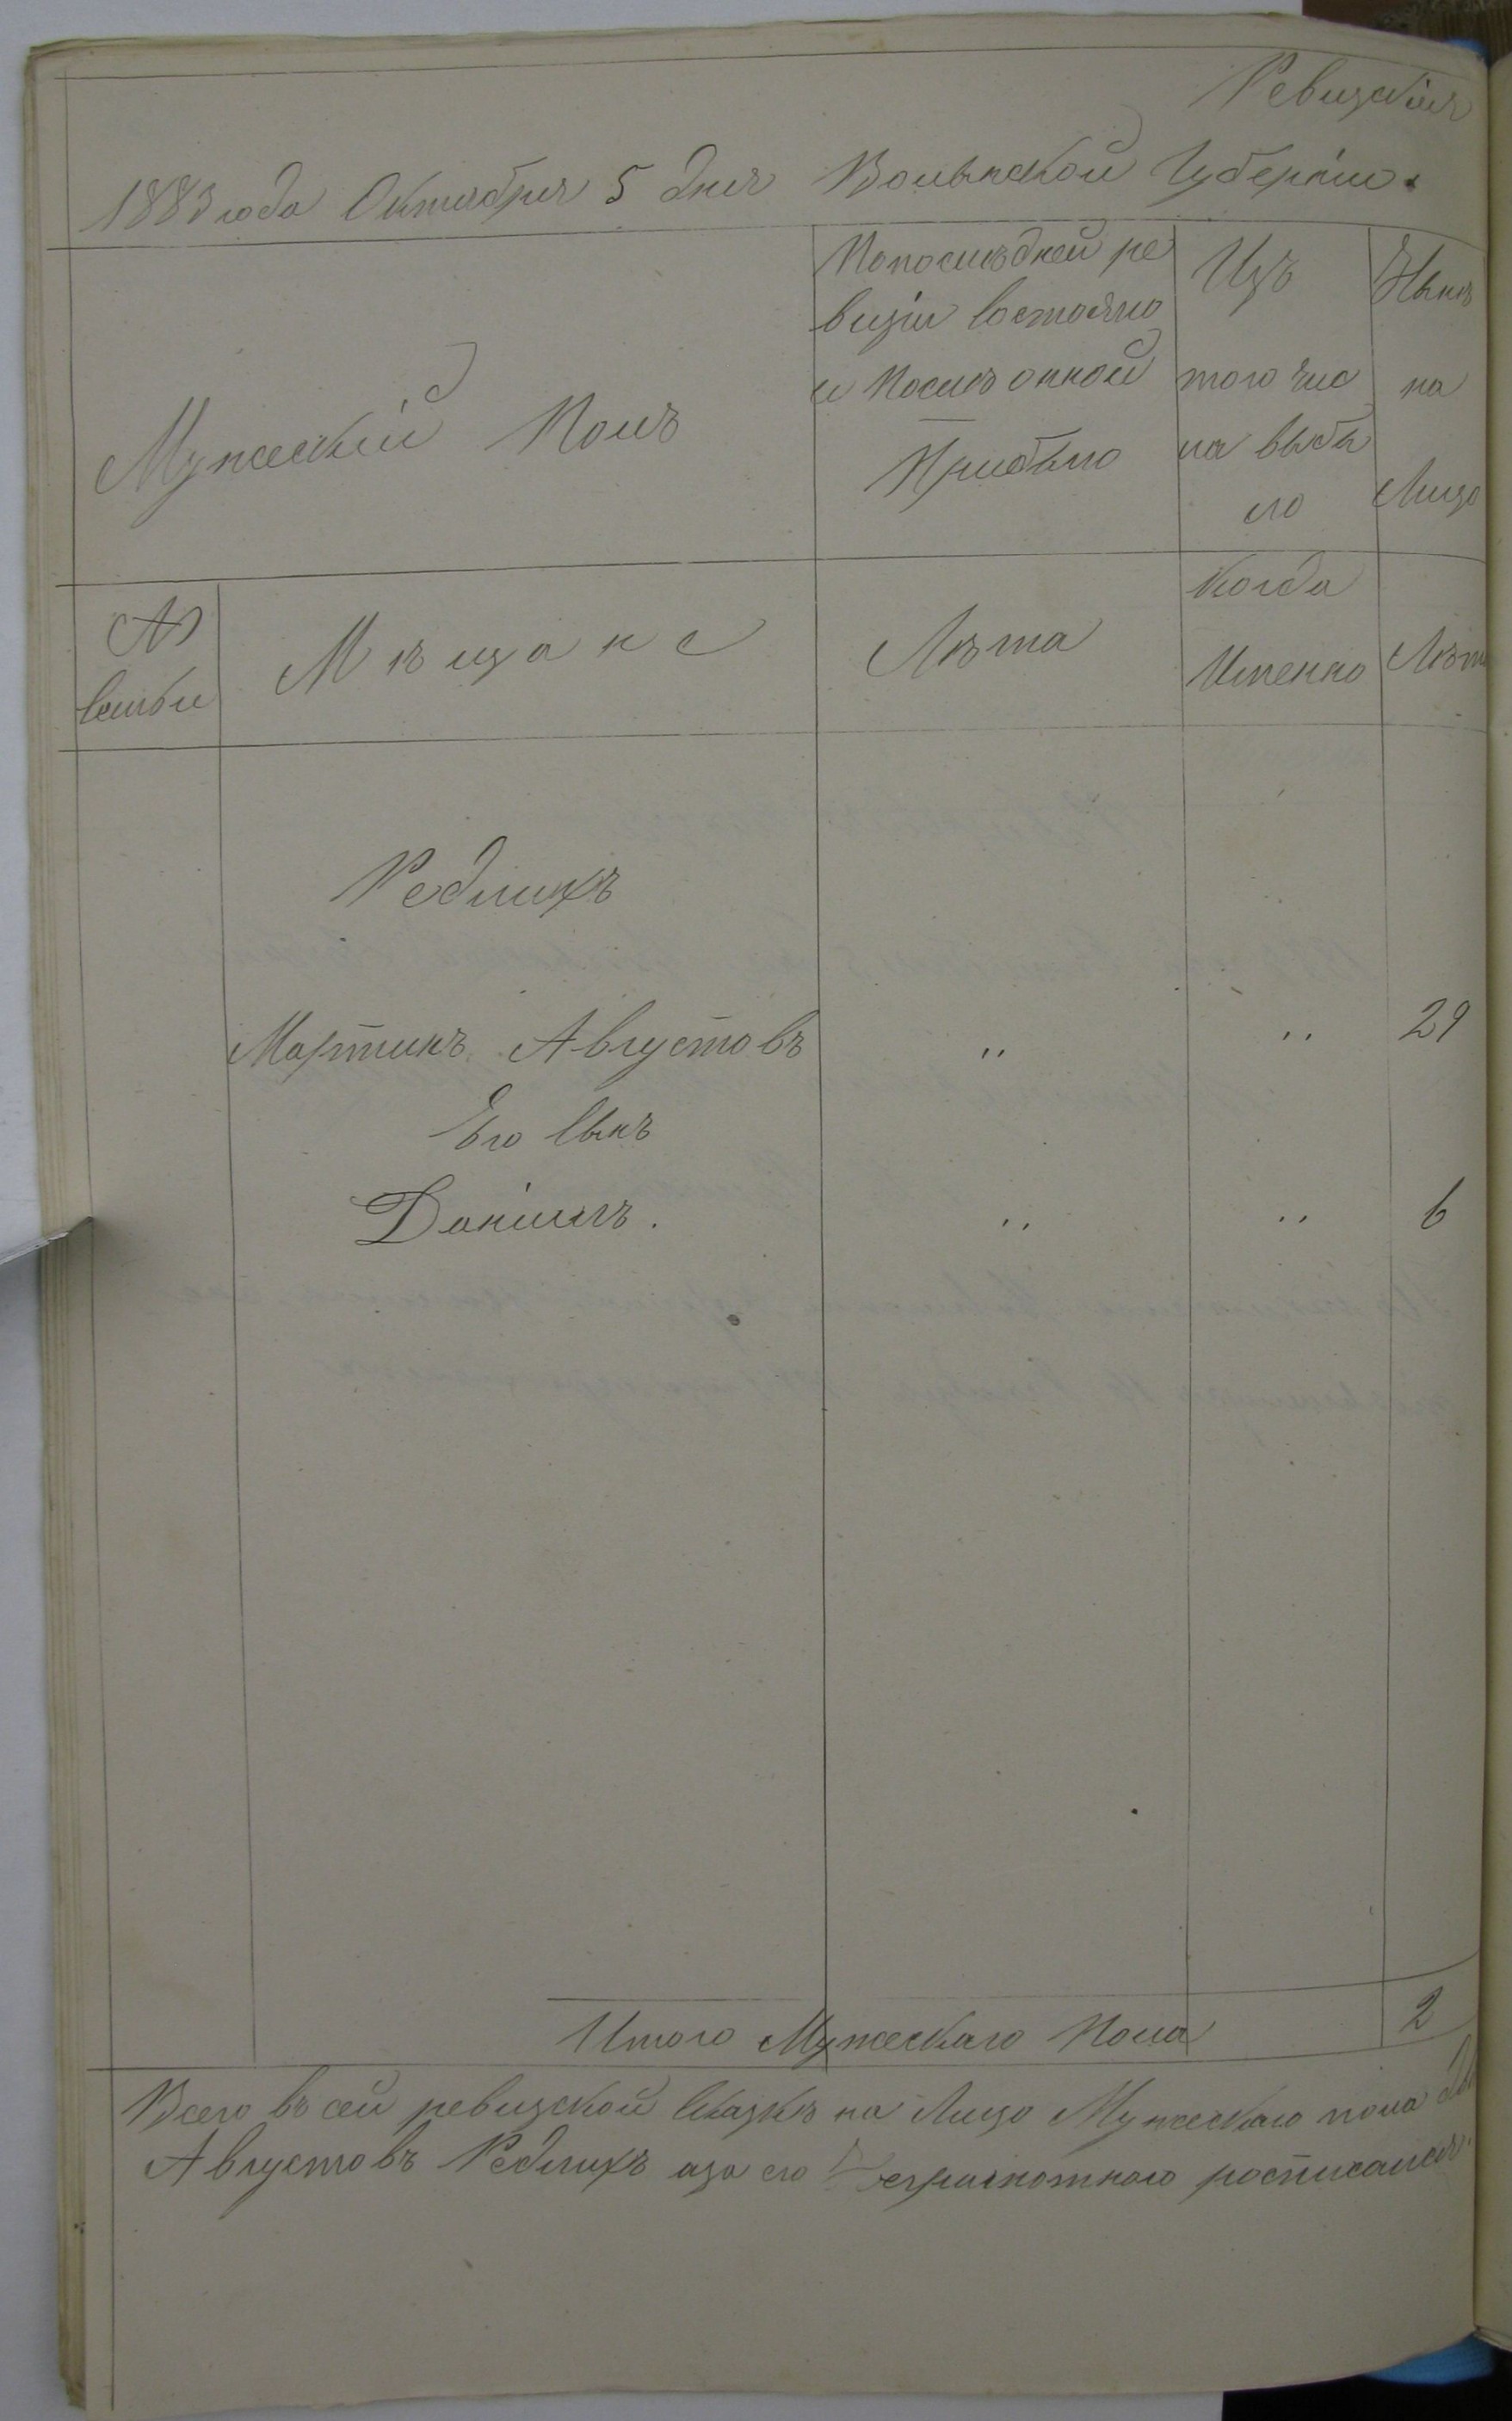 Ревизская
1883 года Октября 5 дня Волынской Губерніи.
Мужескій Полъ
Попослѣдней ре
визіи Состояло
и Послѣ онной
Прибыло
Изъ
того чис
ла выбы
ло
Нынѣ
на
Лицо
№
семьи
Мѣщане
Лѣта
Когда
Именно
Лѣта
Редлихъ
Мартинъ Августовъ " " 29
Его Сынъ
Даніилъ. " " 6
Итого Мужескаго Пола 2
Всего въ сей ревизской Сказкѣ на Лицо Мужескаго пола
Августовъ Редлихъ аза его безграмотнаго росписался